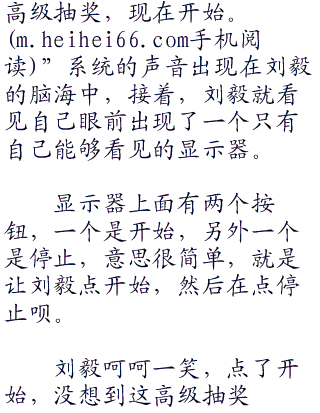 高级抽奖，现在开始。
(m.heihei66.com手机阅
读)”系统的声音出现在刘毅
的脑海中，接着，刘毅就看
见自己眼前出现了一个只有
自己能够看见的显示器。
显示器上面有两个按
钮，一个是开始，另外一个
是停止，意思很简单，就是
让刘毅点开始，然后在点停
止呗。
刘毅呵呵一笑，点了开
始，没想到这高级抽奖